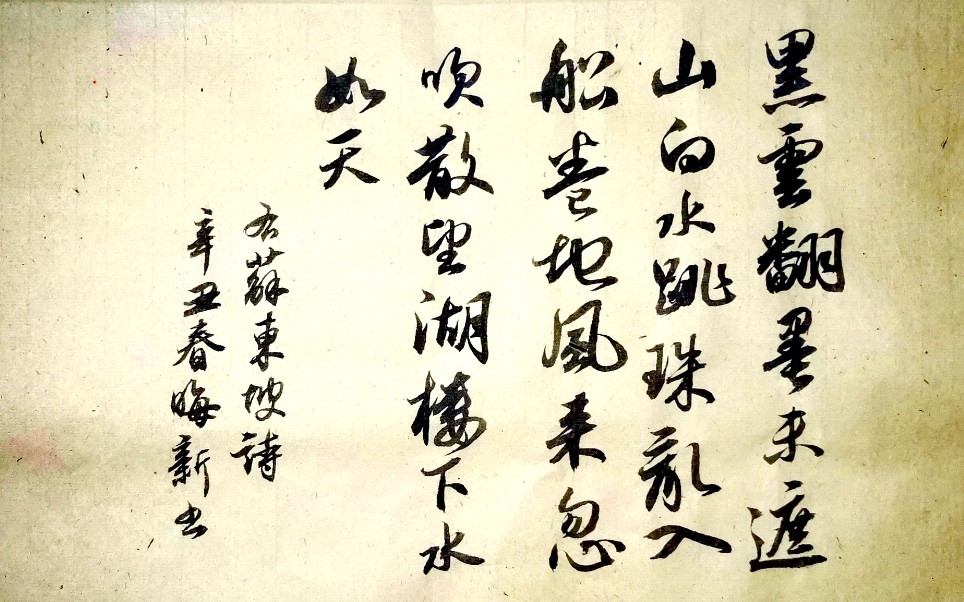 黑雲翻墨未遮
山白水跳珠亂入
船卷地風来忽
吹散望湖樓下水
如天
右蘇東坡詩
辛丑春晦新书